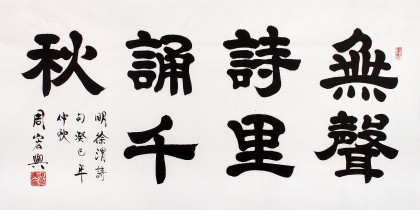 無聲
詩里
誦千
秋
明徐渭詩
句癸巳年
仲秋
周容興